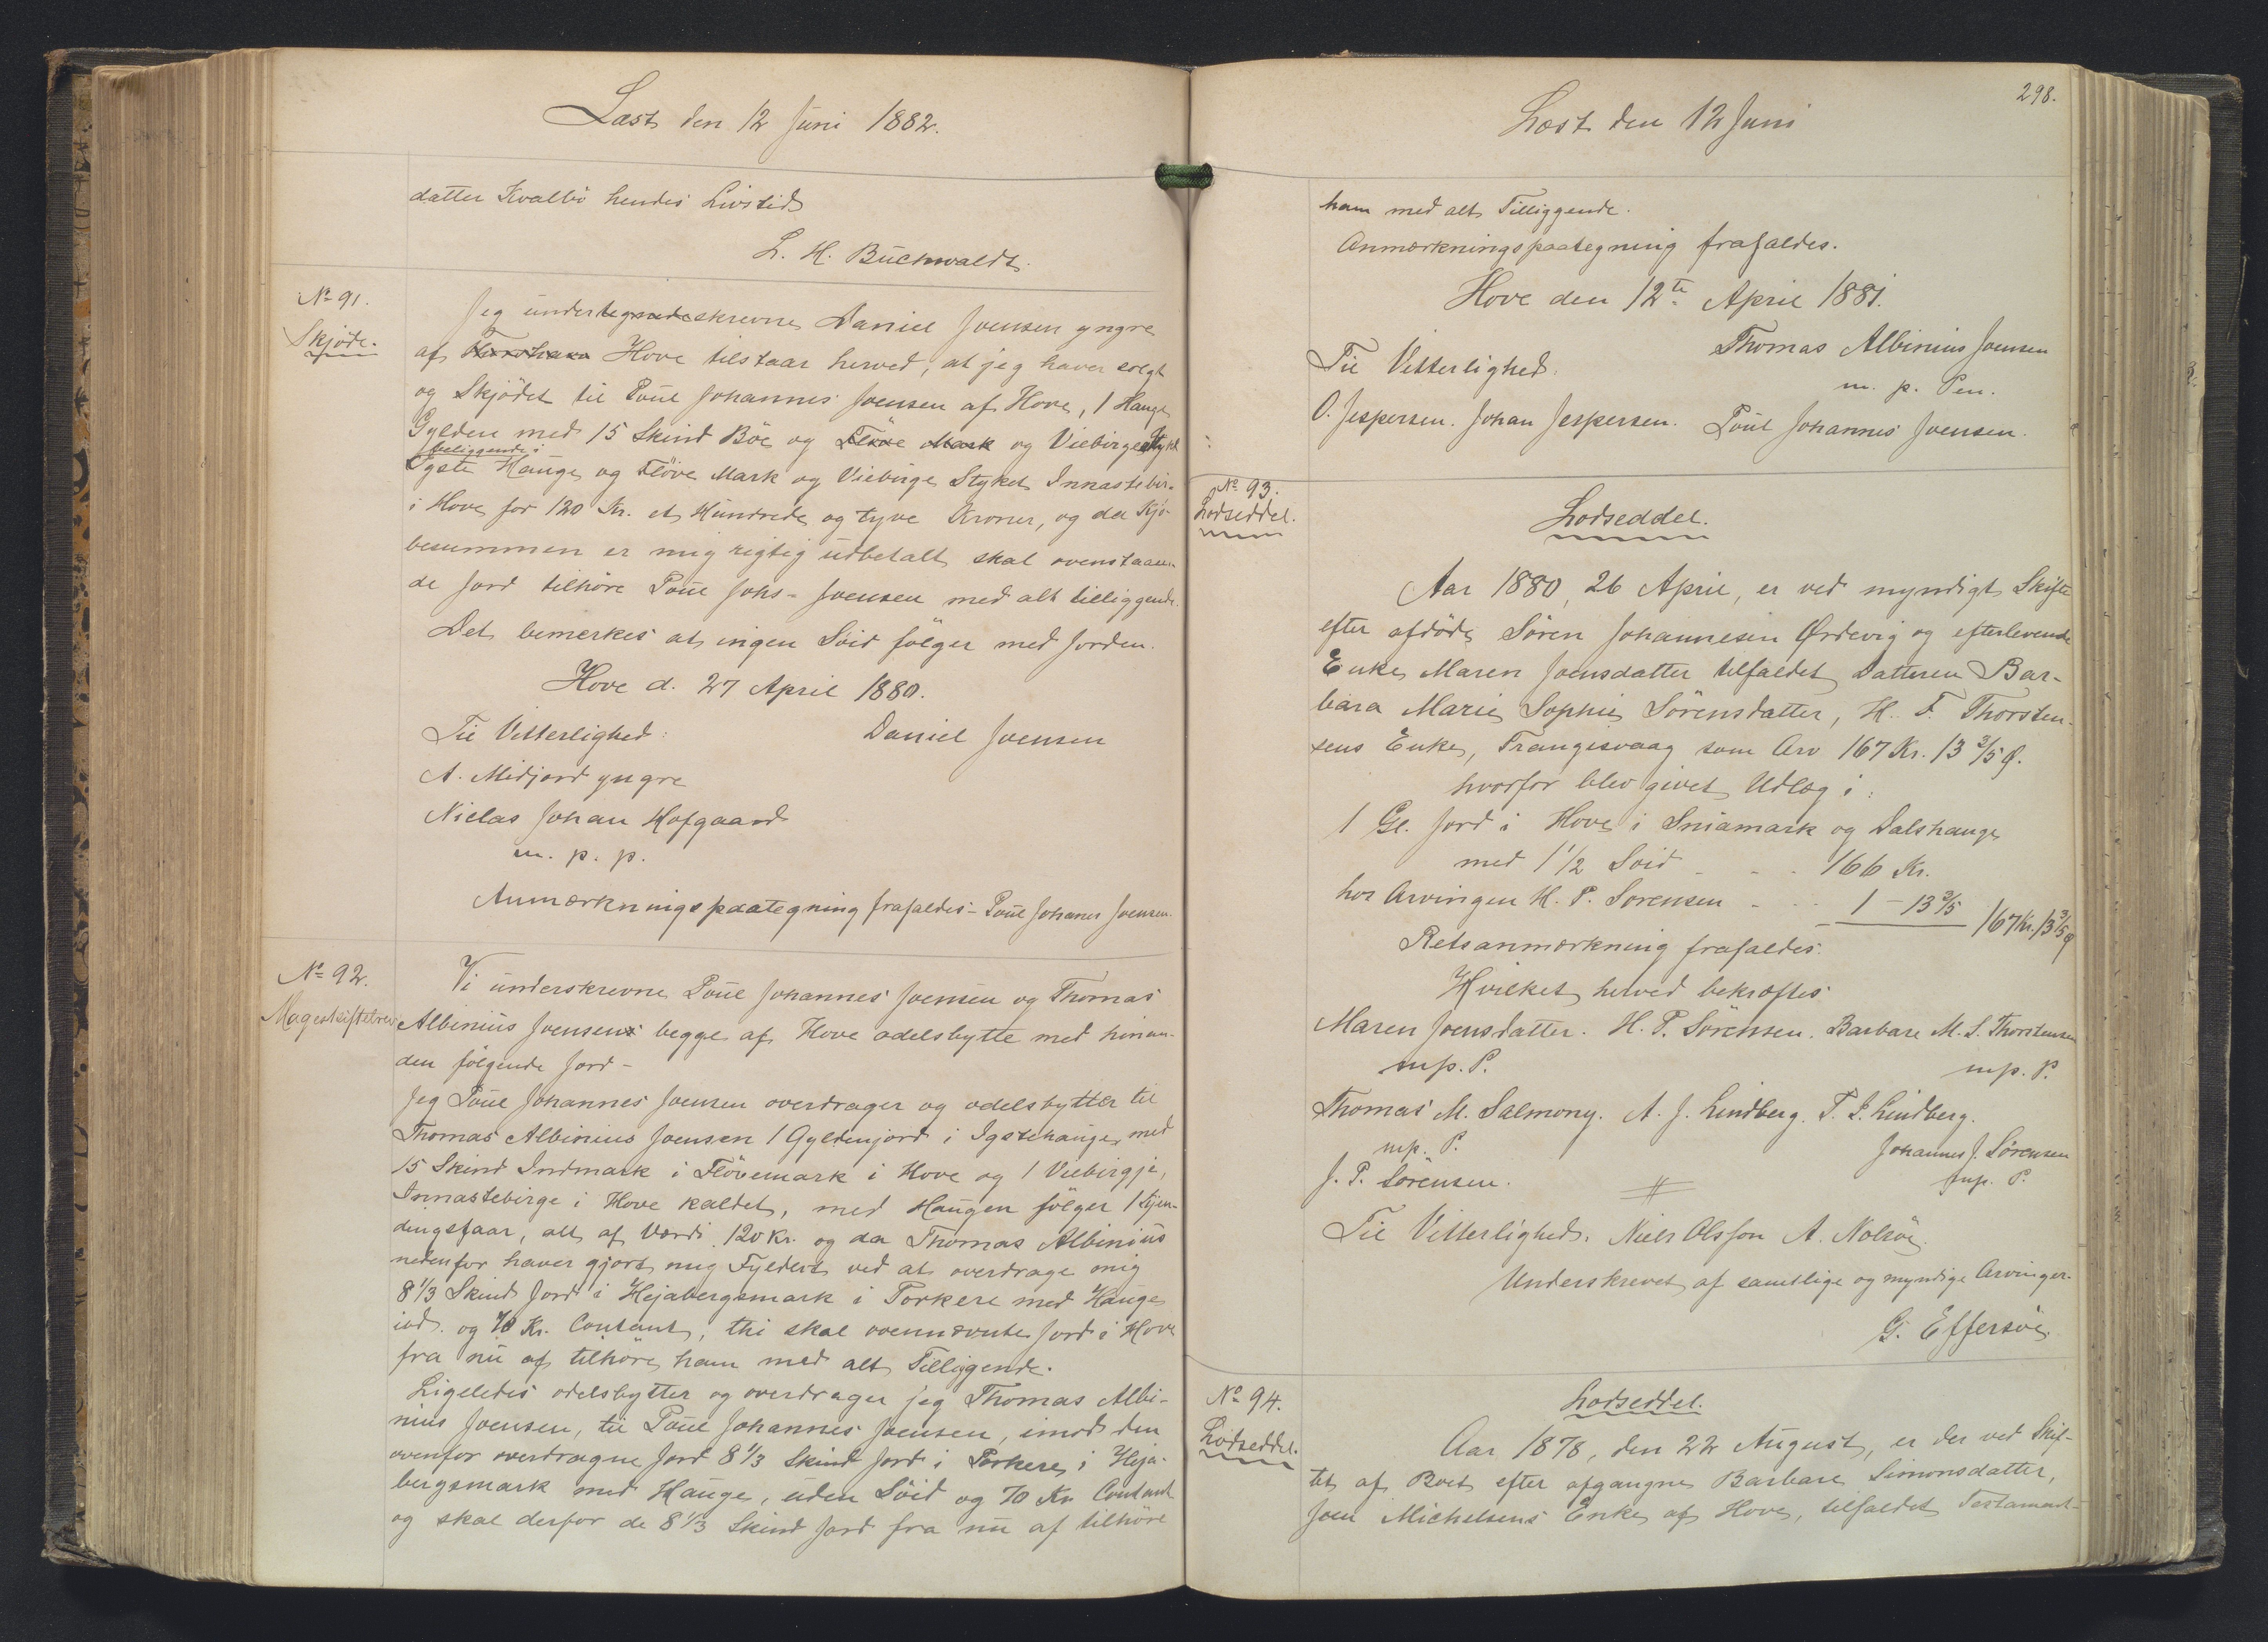 Læst den 12 Juni 1882.
datter Kvalbö hendes Livstid
L. H. Buchwaldt.
No 91.
Skjöde.
Jeg undertegnedeskrevne Daniel Joensen yngre
af Hove tilstaar herved, at jeg haver solgt
og Skjödet til Poul Johannes Joensen af Hove, 1 Hauge
Gylden med 15 Skind Böe og Flöve Mark og Viebirge Styket
beliggende i
Igste Hauge og Flöve Mark og Viebirge Styket Innastebir-
i Hove for 120 Kr. et Hundrede og tyve Kroner, og da Kjö-
besummen er mig rigtig udbetalt skal ovenstaaen-
de Jord tilhöre Poul Johs- Joensen med alt tilliggende.
Det bemerkes at ingen Söid fölger med Jorden.
Hove d. 27 April 1880.
Til Vitterlighed: Daniel Joensen
A. Midjord yngre
Niclas Johan Hofgaard
m. p. p.
Anmærkningspaategning frafaldes - Poul Johanes Joensen.
No 92.
Mageskiftebrev
Vi underskrevne Poul Johannes Joensen og Thomas
Albinius Joensens begge af Hove odelsbytte med hinan-
den fölgende Jord -
Jeg Poul Johannes Joensen overdrager og odelsbytter til
Thomas Albinius Joensen 1 Gyldenjord i Igstehauge, med
15 Skind Indmark i Flövemark i Hove og 1 Viebirgje,
Innastebirge i Hove kaldet, med Haugen fölger 1 Sjen-
dingsfaar, alt af Værdi 120 Kr. og da Thomas Albinius
nedenfor haver gjort mig Fyldest ved at overdrage mig
8 1/3 Skind Jord i Hejabergsmark i Porkere med Hauge
iod. og 70 Kr. Contant, thi skal ovennævnte Jord i Hove
fra nu af tilhöre ham med alt Tilliggende.
Ligeledes odelsbytter og overdrager jeg Thomas Albi-
nius Joensen, til Poul Johannes Joensen, imod den
ovenfor overdragne Jord 8 1/3 Skind Jord i Porkere, i Heja-
bergsmark med Hauge, uden Söid og 70 Kr Contant
og skal derfor de 8 1/3 Skind Jord fra nu af tilhöre
298.
Læst den 12 Juni
ham med alt Tilliggende.
Anmærkningspaategning frafaldes.
Hove den 12te April 1881.
Til Vitterlighed. Thomas Albinius Joensen
m. p. Pen.
O. Jespersen. Johan Jespersen. Poul Johannes Joensen.
No 93.
Lodseddel.
Lodseddel.
Aar 1880, 26 April, er ved myndigt Skifte
efter afdöde Sören Johannesen Ørdevig og efterlevende
Enke Maren Joensdatter tilfaldet Datteren Bar-
bara Marie Sophie Sörensdatter, H. F. Thorsten-
sens Enke, Trangisvaag som Arv 167 Kr. 13 3/5 Ø.
hvorfor blev givet Udlæg i:
1 Gl. Jord i Hove i Sniamark og Dalshauge
med 1 1/2 Soid - - - 166 Kr.
hos Arvingen H. P. Sorensen - - - 1 - 13 3/5 167 Kr. 13 3/5 Ø
Retsanmærkning frafaldes.
Hvilket herved bekræftes
Maren Joensdatter. H. P. Sörensen. Barbare M. S. Thorstensen
mp. P. mp. P.
Thomas M. Salmony. A. J. Lindberg. T. J. Lindberg.
mp. P. Johannes J. Sörensen
J. P. Sörensen. mp. P.
Til Vitterlighed. Niels Olsson A. Nolsöe.
Underskrevet af samtlige og myndige Arvinger.
G. Effersöe.
No 94.
Lodseddel.
Lodseddel.
Aar 1878, den 22 August, er der ved Skif-
tet af Boet efter afgangne Barbare Simonsdatter,
Joen Michelsens Enke af Hove, tilfaldet Testament-